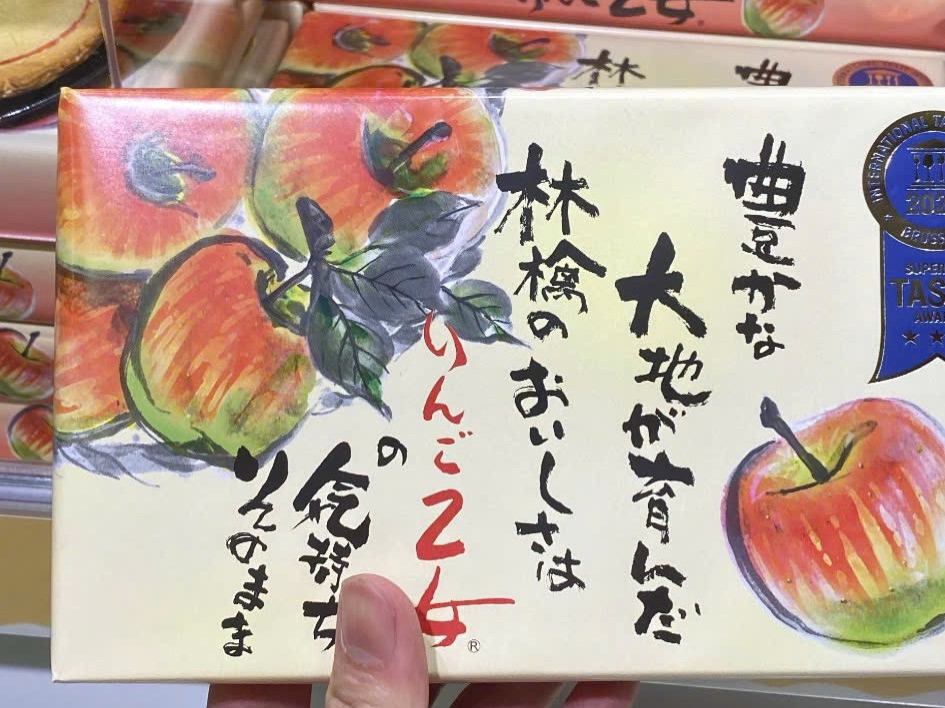 豊かな
大地が育んだ
林檎のおいしさは
りんご乙女®
の気持ち
そのまま
INTERNATIONAL TA
BRUSS
SUPER
TAS
AWA
林
豊
乙女